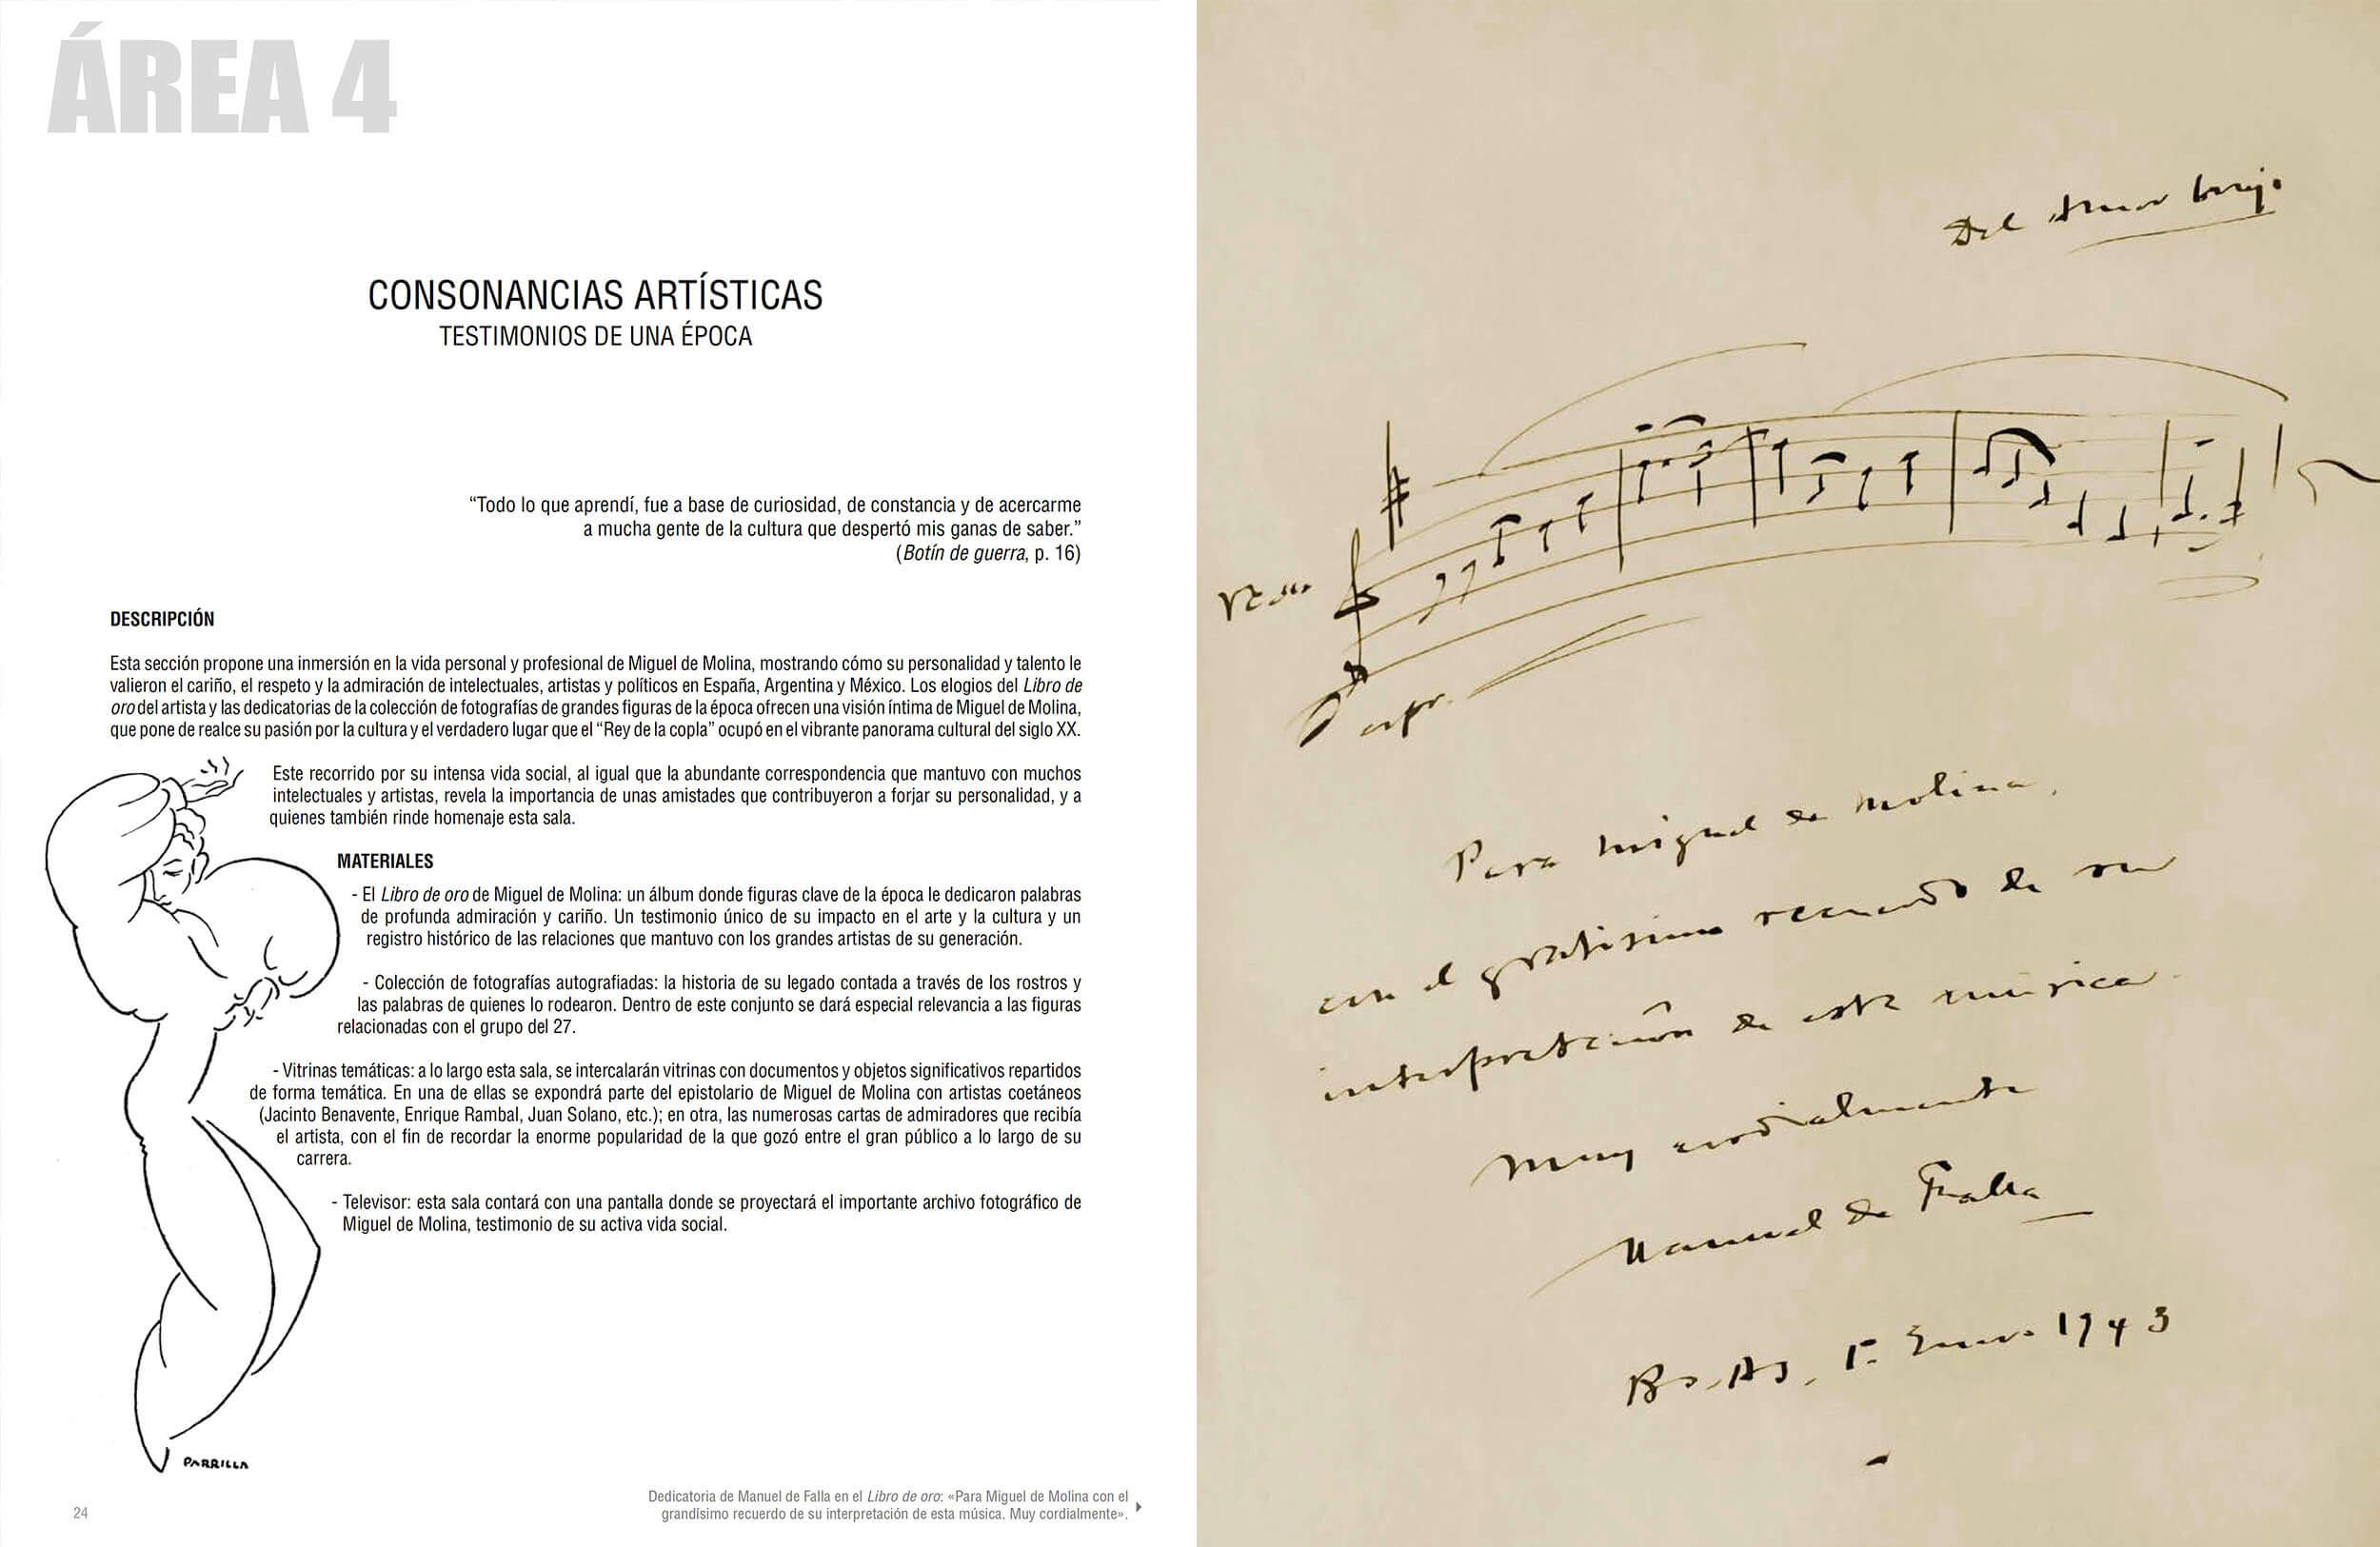 ÁREA 4
CONSONANCIAS ARTÍSTICAS
TESTIMONIOS DE UNA ÉPOCA
“Todo lo que aprendí, fue a base de curiosidad, de constancia y de acercarme
a mucha gente de la cultura que despertó mis ganas de saber.”
(Botín de guerra, p. 16)
DESCRIPCIÓN
Esta sección propone una inmersión en la vida personal y profesional de Miguel de Molina, mostrando cómo su personalidad y talento le
valieron el cariño, el respeto y la admiración de intelectuales, artistas y políticos en España, Argentina y México. Los elogios del Libro de
oro del artista y las dedicatorias de la colección de fotografías de grandes figuras de la época ofrecen una visión íntima de Miguel de Molina,
que pone de realce su pasión por la cultura y el verdadero lugar que el “Rey de la copla” ocupó en el vibrante panorama cultural del siglo XX.
Este recorrido por su intensa vida social, al igual que la abundante correspondencia que mantuvo con muchos
intelectuales y artistas, revela la importancia de unas amistades que contribuyeron a forjar su personalidad, y a
quienes también rinde homenaje esta sala.
MATERIALES
- El Libro de oro de Miguel de Molina: un álbum donde figuras clave de la época le dedicaron palabras
de profunda admiración y cariño. Un testimonio único de su impacto en el arte y la cultura y un
registro histórico de las relaciones que mantuvo con los grandes artistas de su generación.
- Colección de fotografías autografiadas: la historia de su legado contada a través de los rostros y
las palabras de quienes lo rodearon. Dentro de este conjunto se dará especial relevancia a las figuras
relacionadas con el grupo del 27.
- Vitrinas temáticas: a lo largo esta sala, se intercalarán vitrinas con documentos y objetos significativos repartidos
de forma temática. En una de ellas se expondrá parte del epistolario de Miguel de Molina con artistas coetáneos
(Jacinto Benavente, Enrique Rambal, Juan Solano, etc.); en otra, las numerosas cartas de admiradores que recibía
el artista, con el fin de recordar la enorme popularidad de la que gozó entre el gran público a lo largo de su
carrera.
- Televisor: esta sala contará con una pantalla donde se proyectará el importante archivo fotográfico de
Miguel de Molina, testimonio de su activa vida social.
PARRILLA
Dedicatoria de Manuel de Falla en el Libro de oro: «Para Miguel de Molina con el
grandísimo recuerdo de su interpretación de esta música. Muy cordialmente».
24
Del Amor brujo
Para Miguel de Molina,
con el gratisimo recuerdo de su
interpretación de esta música.
Muy cordialmente
Manuel de Falla
Bs. As, 1º Enero 1943